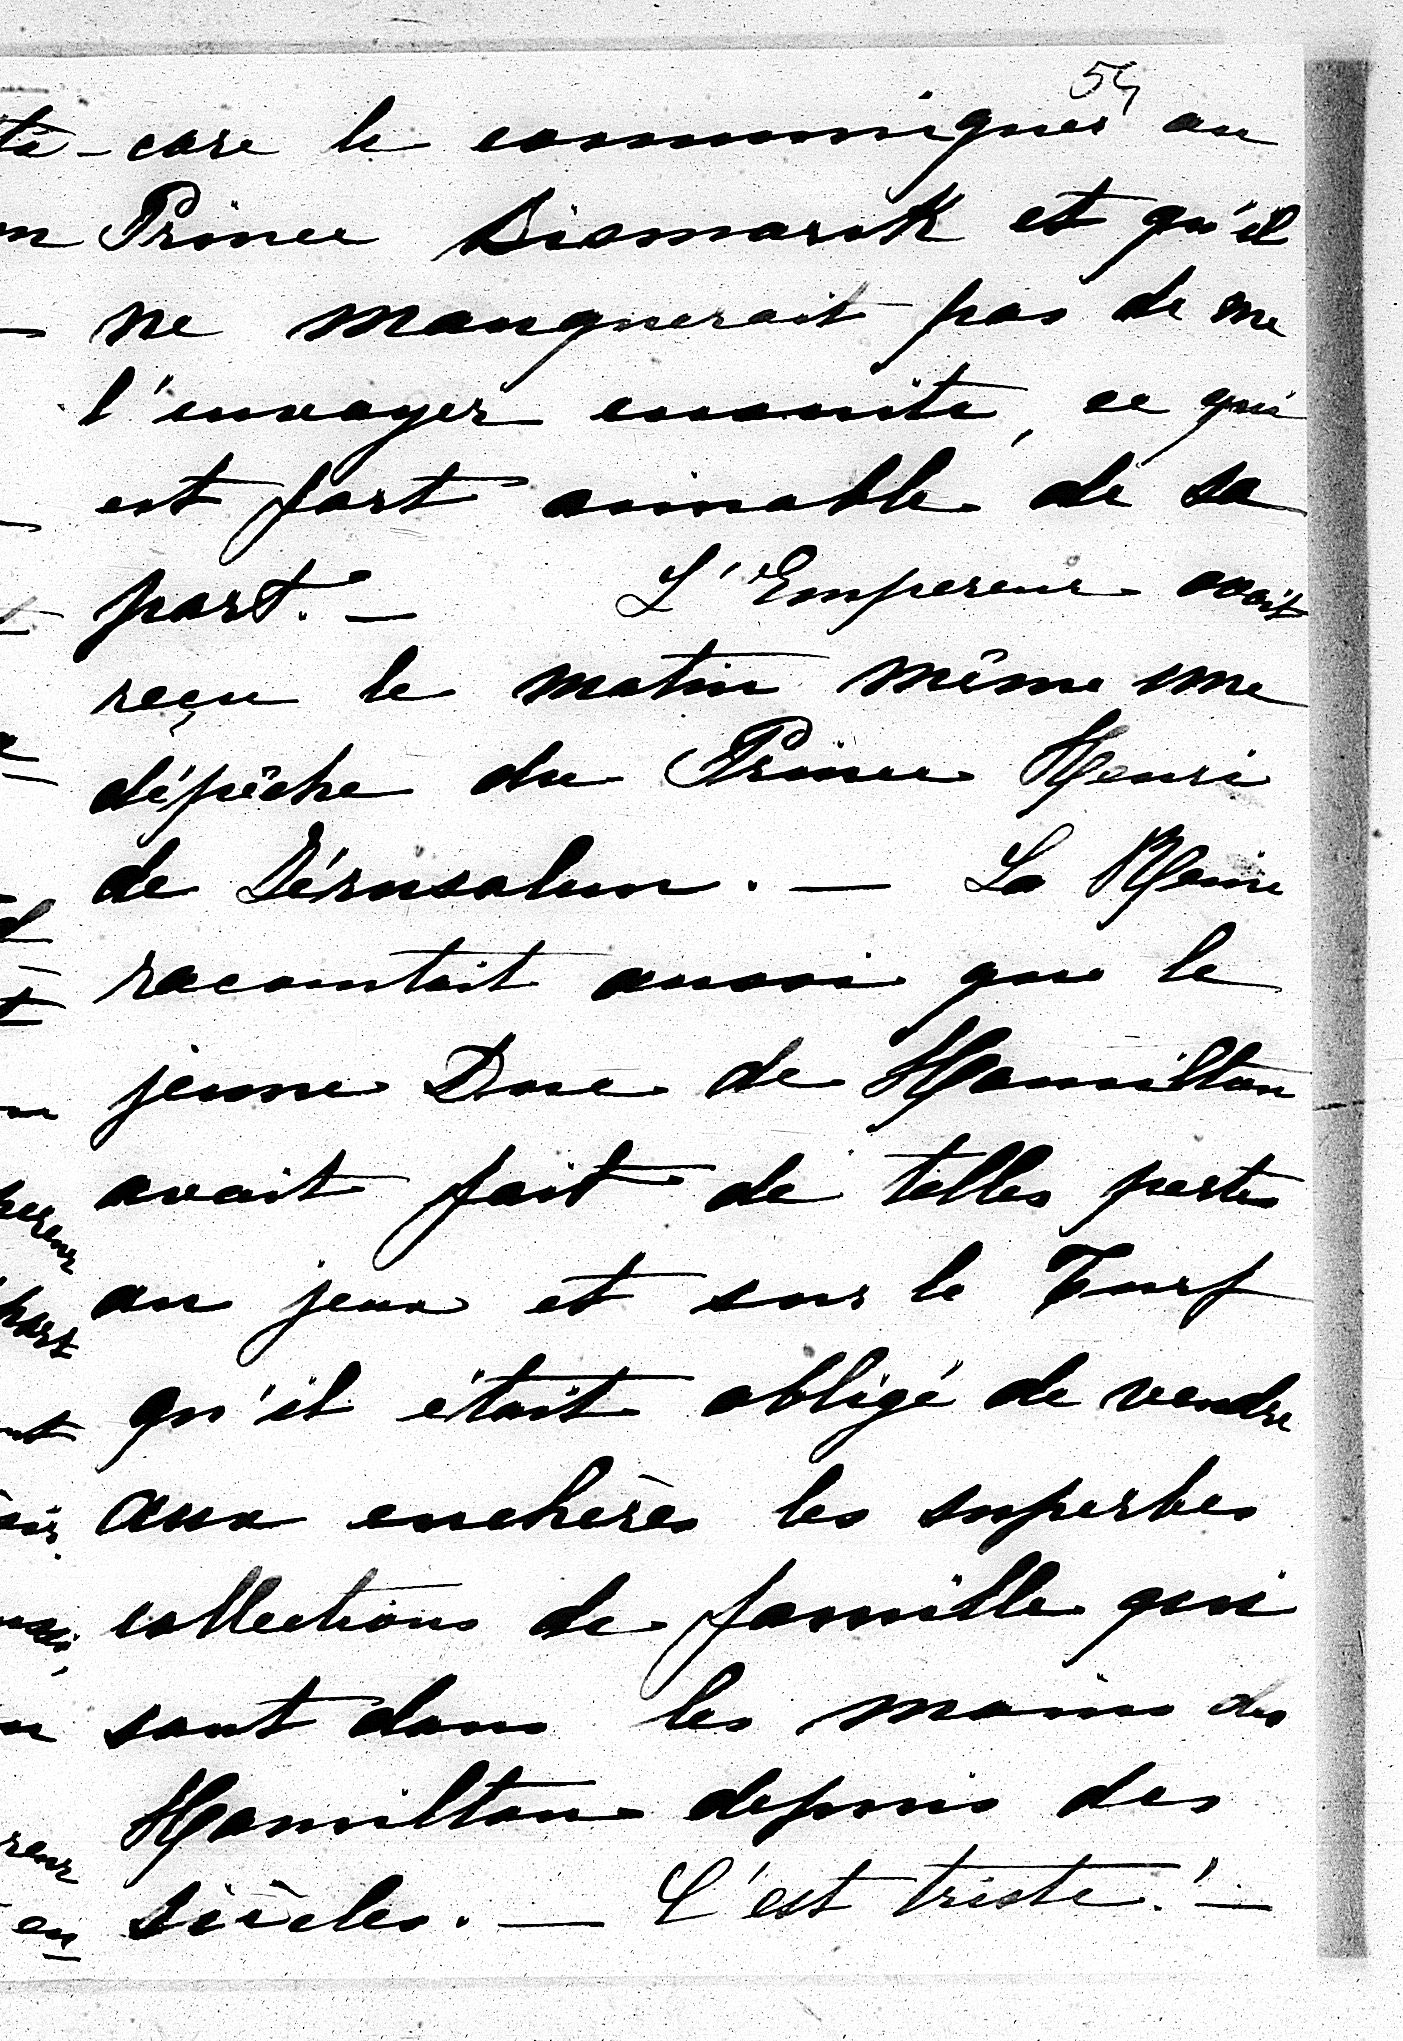 54
core le communiquer au
Prince Bismarck et qu'il
ne manquerait pas de me
l'envoyer ensuite, ce qui
est fort aimable de sa
part. — L'Empereur avait
reçu le matin même une
dépêche du Prince Henri
de Jérusalem. — La Reine
racontait aussi que le
jeune Duc de Hamilton
avait fait de telles pertes
au jeux et sur le Turf
qu'il était obligé de vendre
aux enchères les superbes
collections de famille qui
sont dans les mains des
Hamilton depuis des
siècles. — C'est triste! —